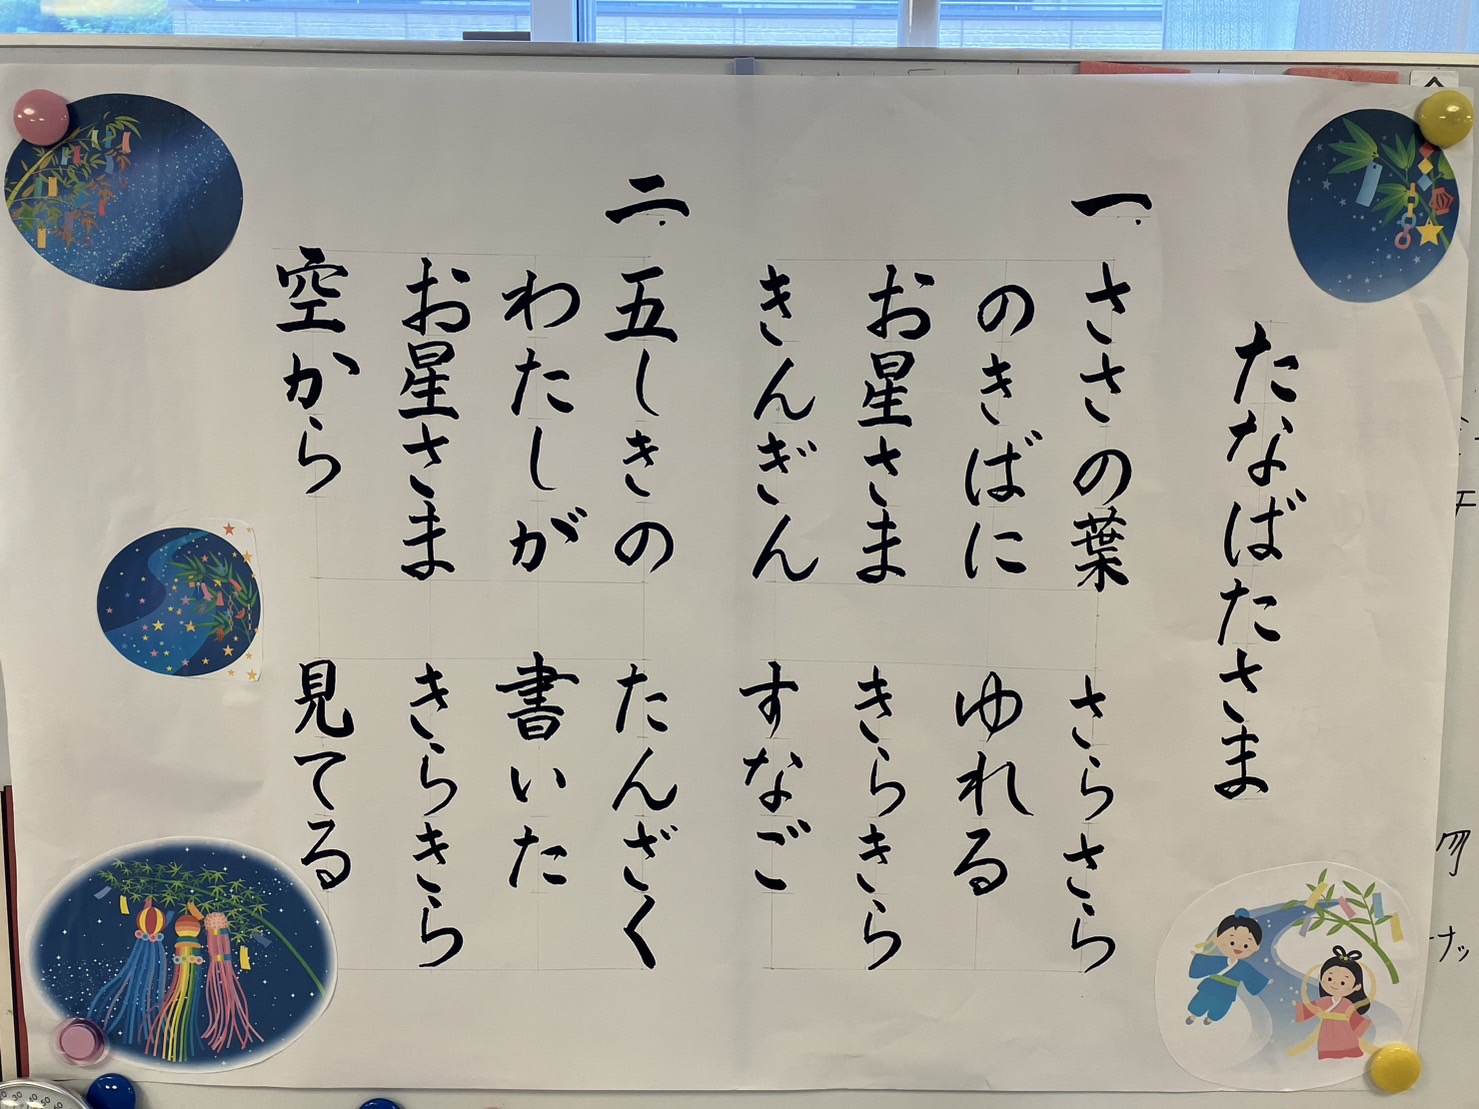 たなばたさま
一. ささの葉 さらさら
のきばに ゆれる
お星さま きらきら
きんぎん すなご
二. 五しきの たんざく
わたしが 書いた
お星さま きらきら
空から 見てる